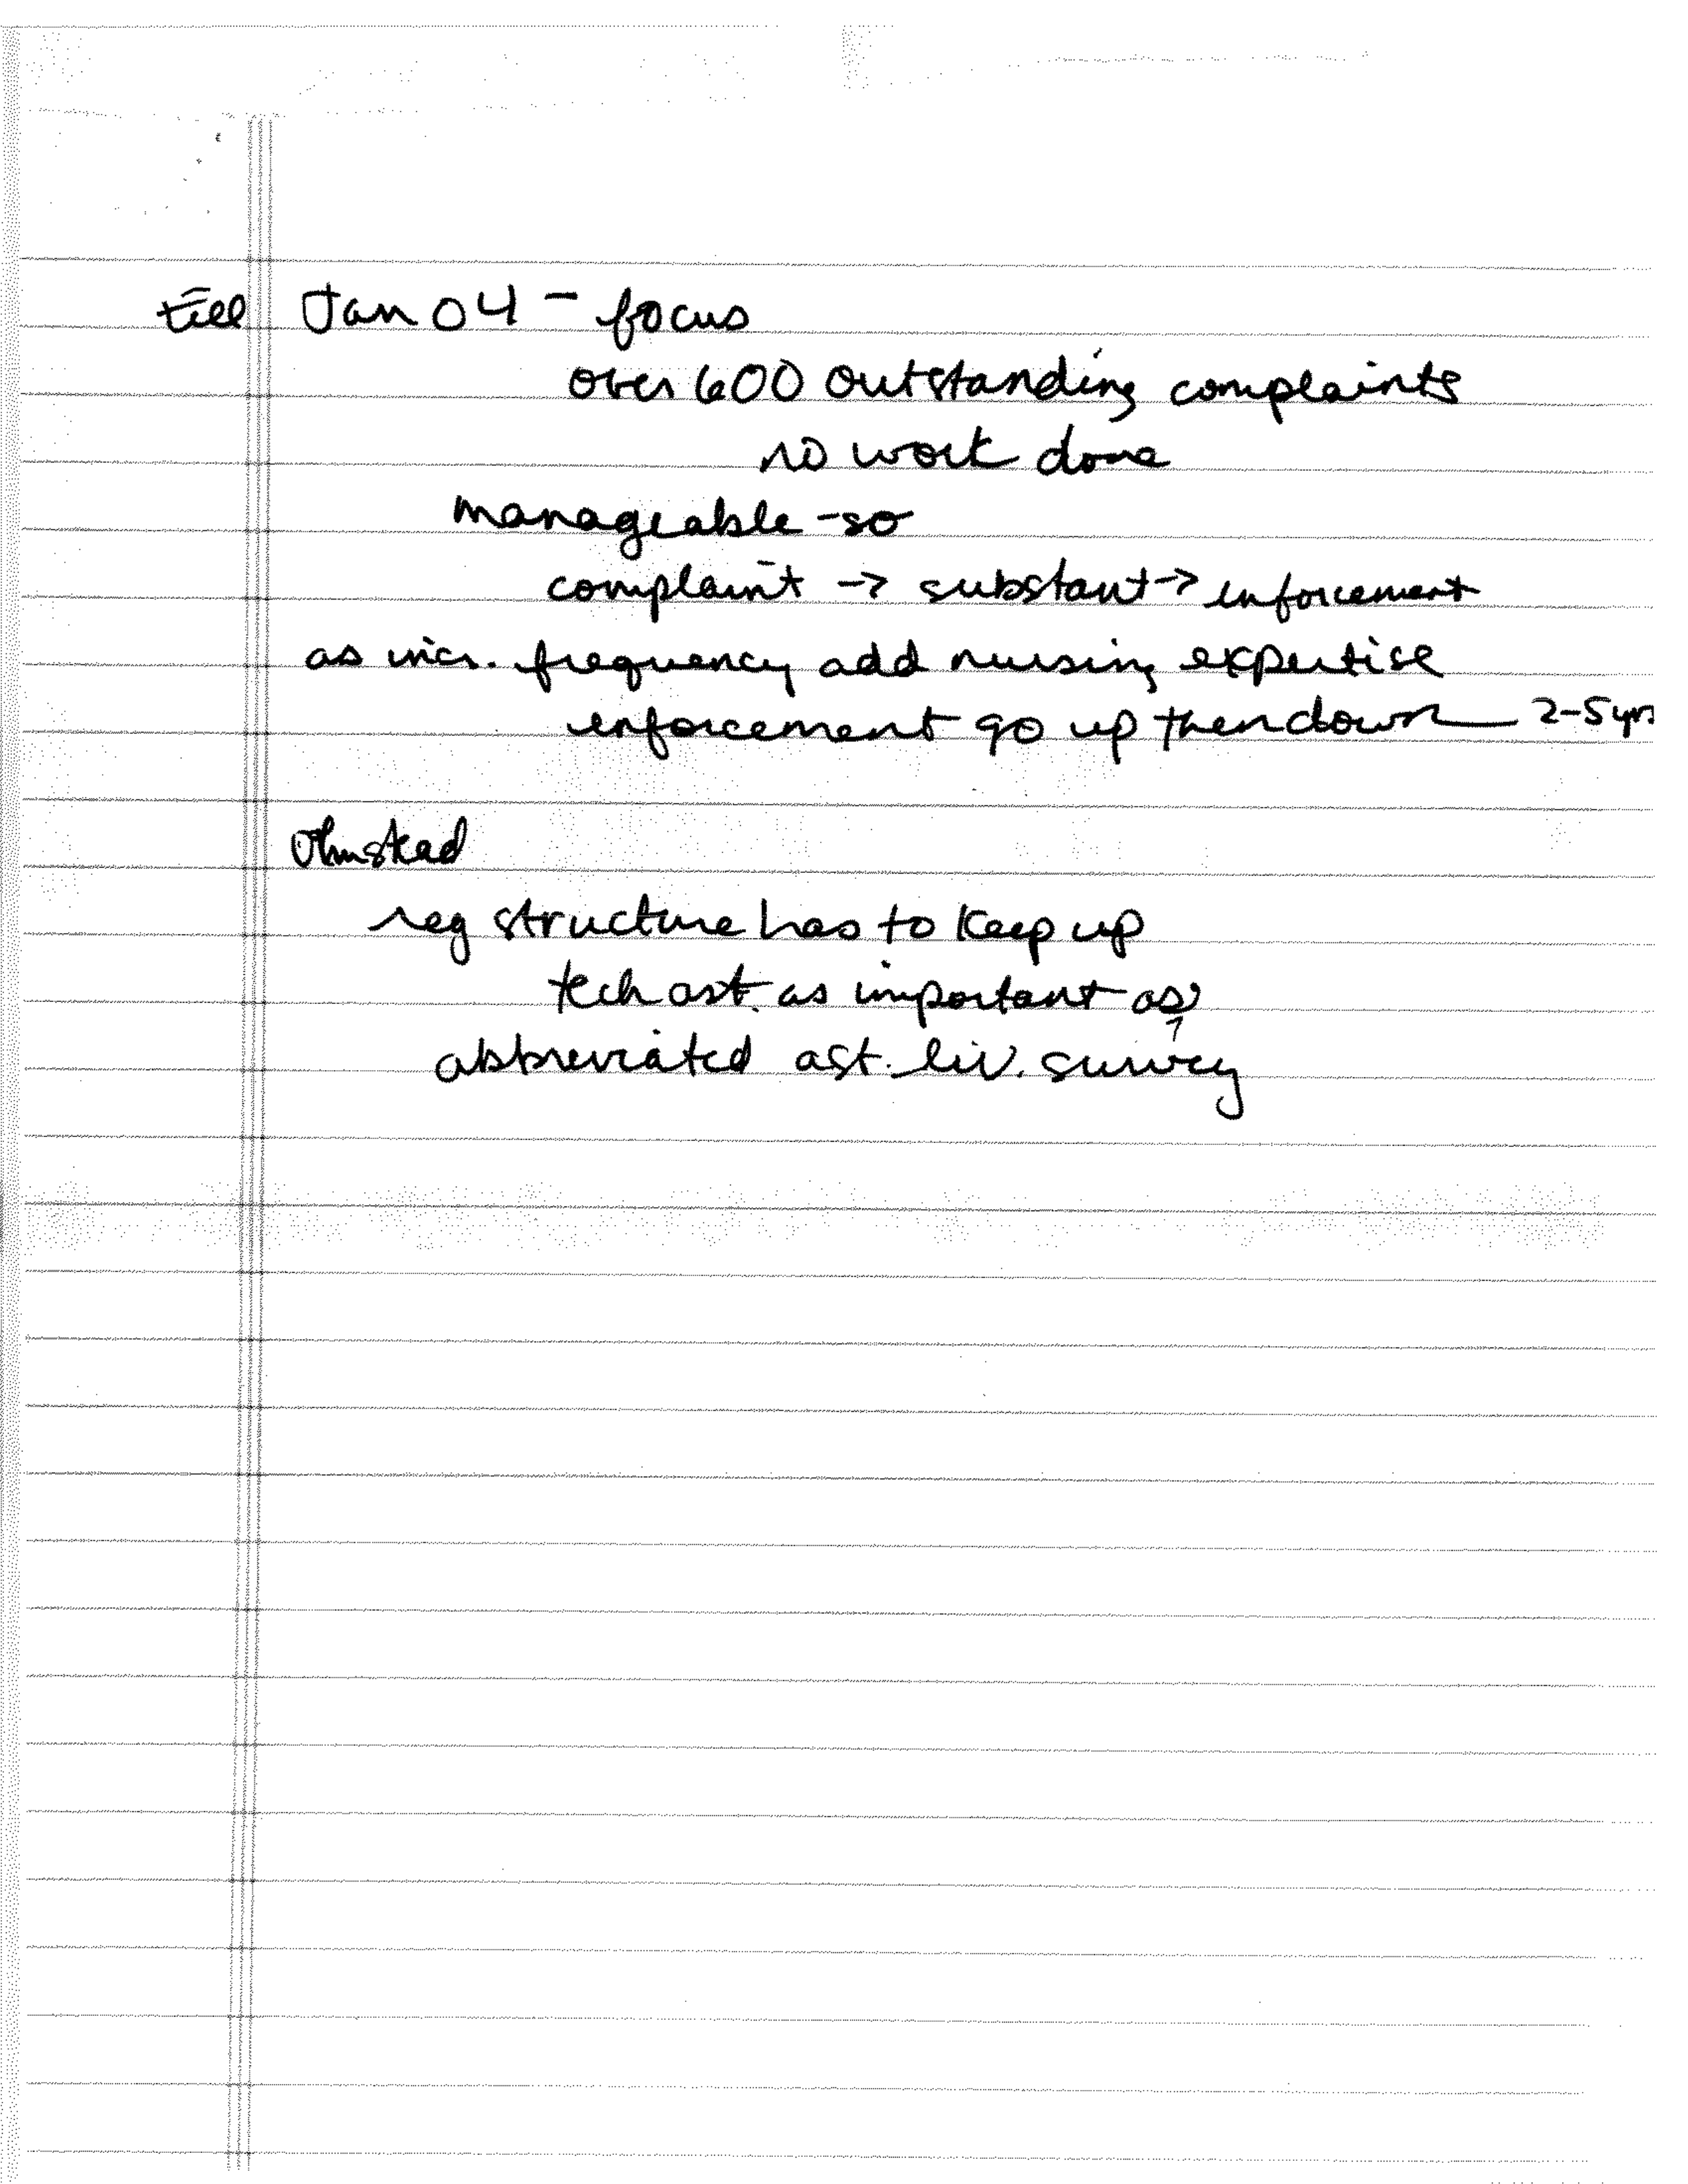 till Jan 04 - focus
over 600 outstanding complaints
no work done
manageable - so
complaint → substant → enforcement
as incr. frequency add nursing expertise
enforcement go up then down — 2-5 yrs
Olmstead
reg structure has to keep up
tech ast. as important as
abbreviated ast. liv. survey